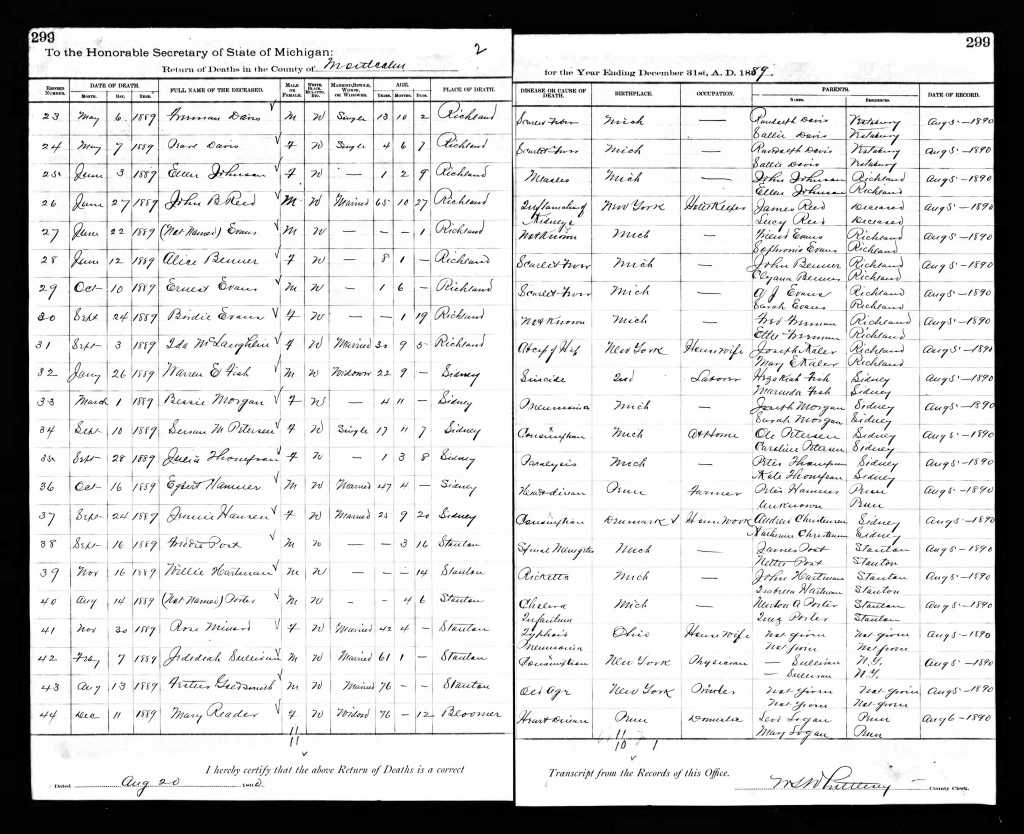 299
To the Honorable Secretary of State of Michigan:
2
Return of Deaths in the County of Montcalm
RECORD NUMBER. DATE OF DEATH. MONTH. DAY. YEAR. FULL NAME OF THE DECEASED. MALE OR FEMALE. WHITE, BLACK, MULATTO, ETC. MARRIED, SINGLE, WIDOW, OR WIDOWER. AGE. YEARS. MONTHS. DAYS. PLACE OF DEATH.
23 May 6 1889 Truman Davis M W Single 13 10 2 Richland
24 May 7 1889 Davis F W Single 4 6 7 Richland
25 June 3 1889 Ellen Johnson F W — 1 2 9 Richland
26 June 27 1889 John B Reed M W Married 65 10 27 Richland
27 June 22 1889 (Not Named) Evans M W — — — 1 Richland
28 June 12 1889 Alice Benner F W — 8 1 — Richland
29 Oct 10 1889 Ernest Evans M W — 1 6 — Richland
30 Sept 24 1889 Birdie F W — — 1 19 Richland
31 Sept 3 1889 Ida McLaughlin F W Married 30 9 5 Richland
32 Jany 26 1889 Warren E Fish M W Widower 22 9 — Sidney
33 March 1 1889 Bessie Morgan F W — 4 11 — Sidney
34 Sept 10 1889 Susan M Petersen F W Single 17 11 7 Sidney
35 Sept 28 1889 Julia Thompson F W — 1 3 8 Sidney
36 Oct 16 1889 Egbert M W Married 47 4 — Sidney
37 Sept 24 1889 Jennie Hansen F W Married 25 9 20 Sidney
38 Sept 16 1889 Freddie Post M W — — 3 16 Stanton
39 Nov 16 1889 Willie Hartman M W — — — 14 Stanton
40 Aug 14 1889 (Not Named) Porter M W — — 4 6 Stanton
41 Nov 30 1889 Rose Minard F W Married 42 4 — Stanton
42 Feby 7 1889 Jedediah Sullivan M W Married 61 1 — Stanton
43 Aug 13 1889 Goldsmith M W Married 76 — — Stanton
44 Dec 11 1889 Mary Reader F W Widow 76 — 12 Bloomer
11
11
I hereby certify that the above Return of Deaths is a correct
Dated Aug 20 1890
299
for the Year Ending December 31st, A. D. 1889.
DISEASE OR CAUSE OF DEATH. BIRTHPLACE. OCCUPATION. PARENTS. NAMES. RESIDENCE. DATE OF RECORD.
Scarlet Fever Mich — Randolph Davis Aug 5 — 1890
Sallie Davis
Scarlet Fever Mich — Randolph Davis Aug 5 — 1890
Sallie Davis
Measles Mich — John Johnson Richland Aug 5 — 1890
Ellen Johnson Richland
Inflamation of Kidneys New York Hotel Keeper James Reed Deceased Aug 5 — 1890
Lucy Reed Deceased
Not Known Mich — Evans Richland Aug 5 — 1890
Sophronia Evans Richland
Scarlet Fever Mich — John Benner Richland Aug 5 — 1890
Benner Richland
Scarlet Fever Mich — A J Evans Richland Aug 5 — 1890
Sarah Evans Richland
Not Known Mich — Richland Aug 5 — 1890
Richland
New York Housewife Joseph Kaler Richland Aug 5 — 1890
Mary E Kaler Richland
Suicide Ind Laborer Hezekiah Fish Sidney Aug 5 — 1890
Marinda Fish Sidney
Pneumonia Mich — Joseph Morgan Sidney Aug 5 — 1890
Sarah Morgan Sidney
Consumption Mich At Home Ole Petersen Sidney Aug 5 — 1890
Caroline Petersen Sidney
Paralysis Mich — Peter Thompson Sidney Aug 5 — 1890
Kate Thompson Sidney
Heart disease Penn Farmer Peter Penn Aug 5 — 1890
Unknown Penn
Consumption Denmark Housework Andrew Christensen Sidney Aug 5 — 1890
Christensen Sidney
Spinal Mich — James Post Stanton Aug 5 — 1890
Nettie Post Stanton
Ricketts Mich — John Hartman Stanton Aug 5 — 1890
Hartman Stanton
Cholera Infantum Mich — Porter Stanton Aug 5 — 1890
Porter Stanton
Typhoid Pneumonia Ohio Housewife Not given Not given Aug 5 — 1890
Not given Not given
Consumption New York Physician — Sullivan N.Y. Aug 5 — 1890
— Sullivan N.Y.
Old Age New York Not given Not given Aug 5 — 1890
Not given Not given
Heart Disease Penn Domestic Levi Logan Penn Aug 6 — 1890
Mary Logan Penn
11
10
1
Transcript from the Records of this Office.
County Clerk.